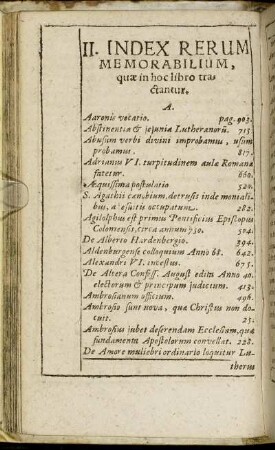 II. INDEX RERUM
MEMORABILIUM,
quæ in hoc libro tra-
ctantur.
A.
Aaronis vocatio. pag. 903.
Abstinentia & jejunia Lutheranorũ. 715.
Abusum verbi divini improbamu, usum
probamus. 817.
Adrianus VI. turpitudinem aulæ Romanæ
fatetur. 660.
Æquissima postulatio 320.
S. Agathis cænobium, detrusis inde moniali-
bus, à Jesuitis occupatum. 282.
Agilolphus est primus Pontificius Episcopus
Coloniensis, circa annum 730. 504.
De Alberto Hardenbergio. 394.
Aldenburgense colloquium Anno 68. 642.
Alexandri VI. incestus. 675.
De Altera Confess. August. edita Anno 40.
electorum & principum judicium. 413.
Ambrosianum officium. 496.
Ambrosio sunt nova, quæ Christus non do-
cuit. 23.
Ambrosius jubet deserendam Ecclesiam, quæ
fundamenta Apostolorum convellat. 228.
De Amore muliebri ordinario loquitur Lu-
therus